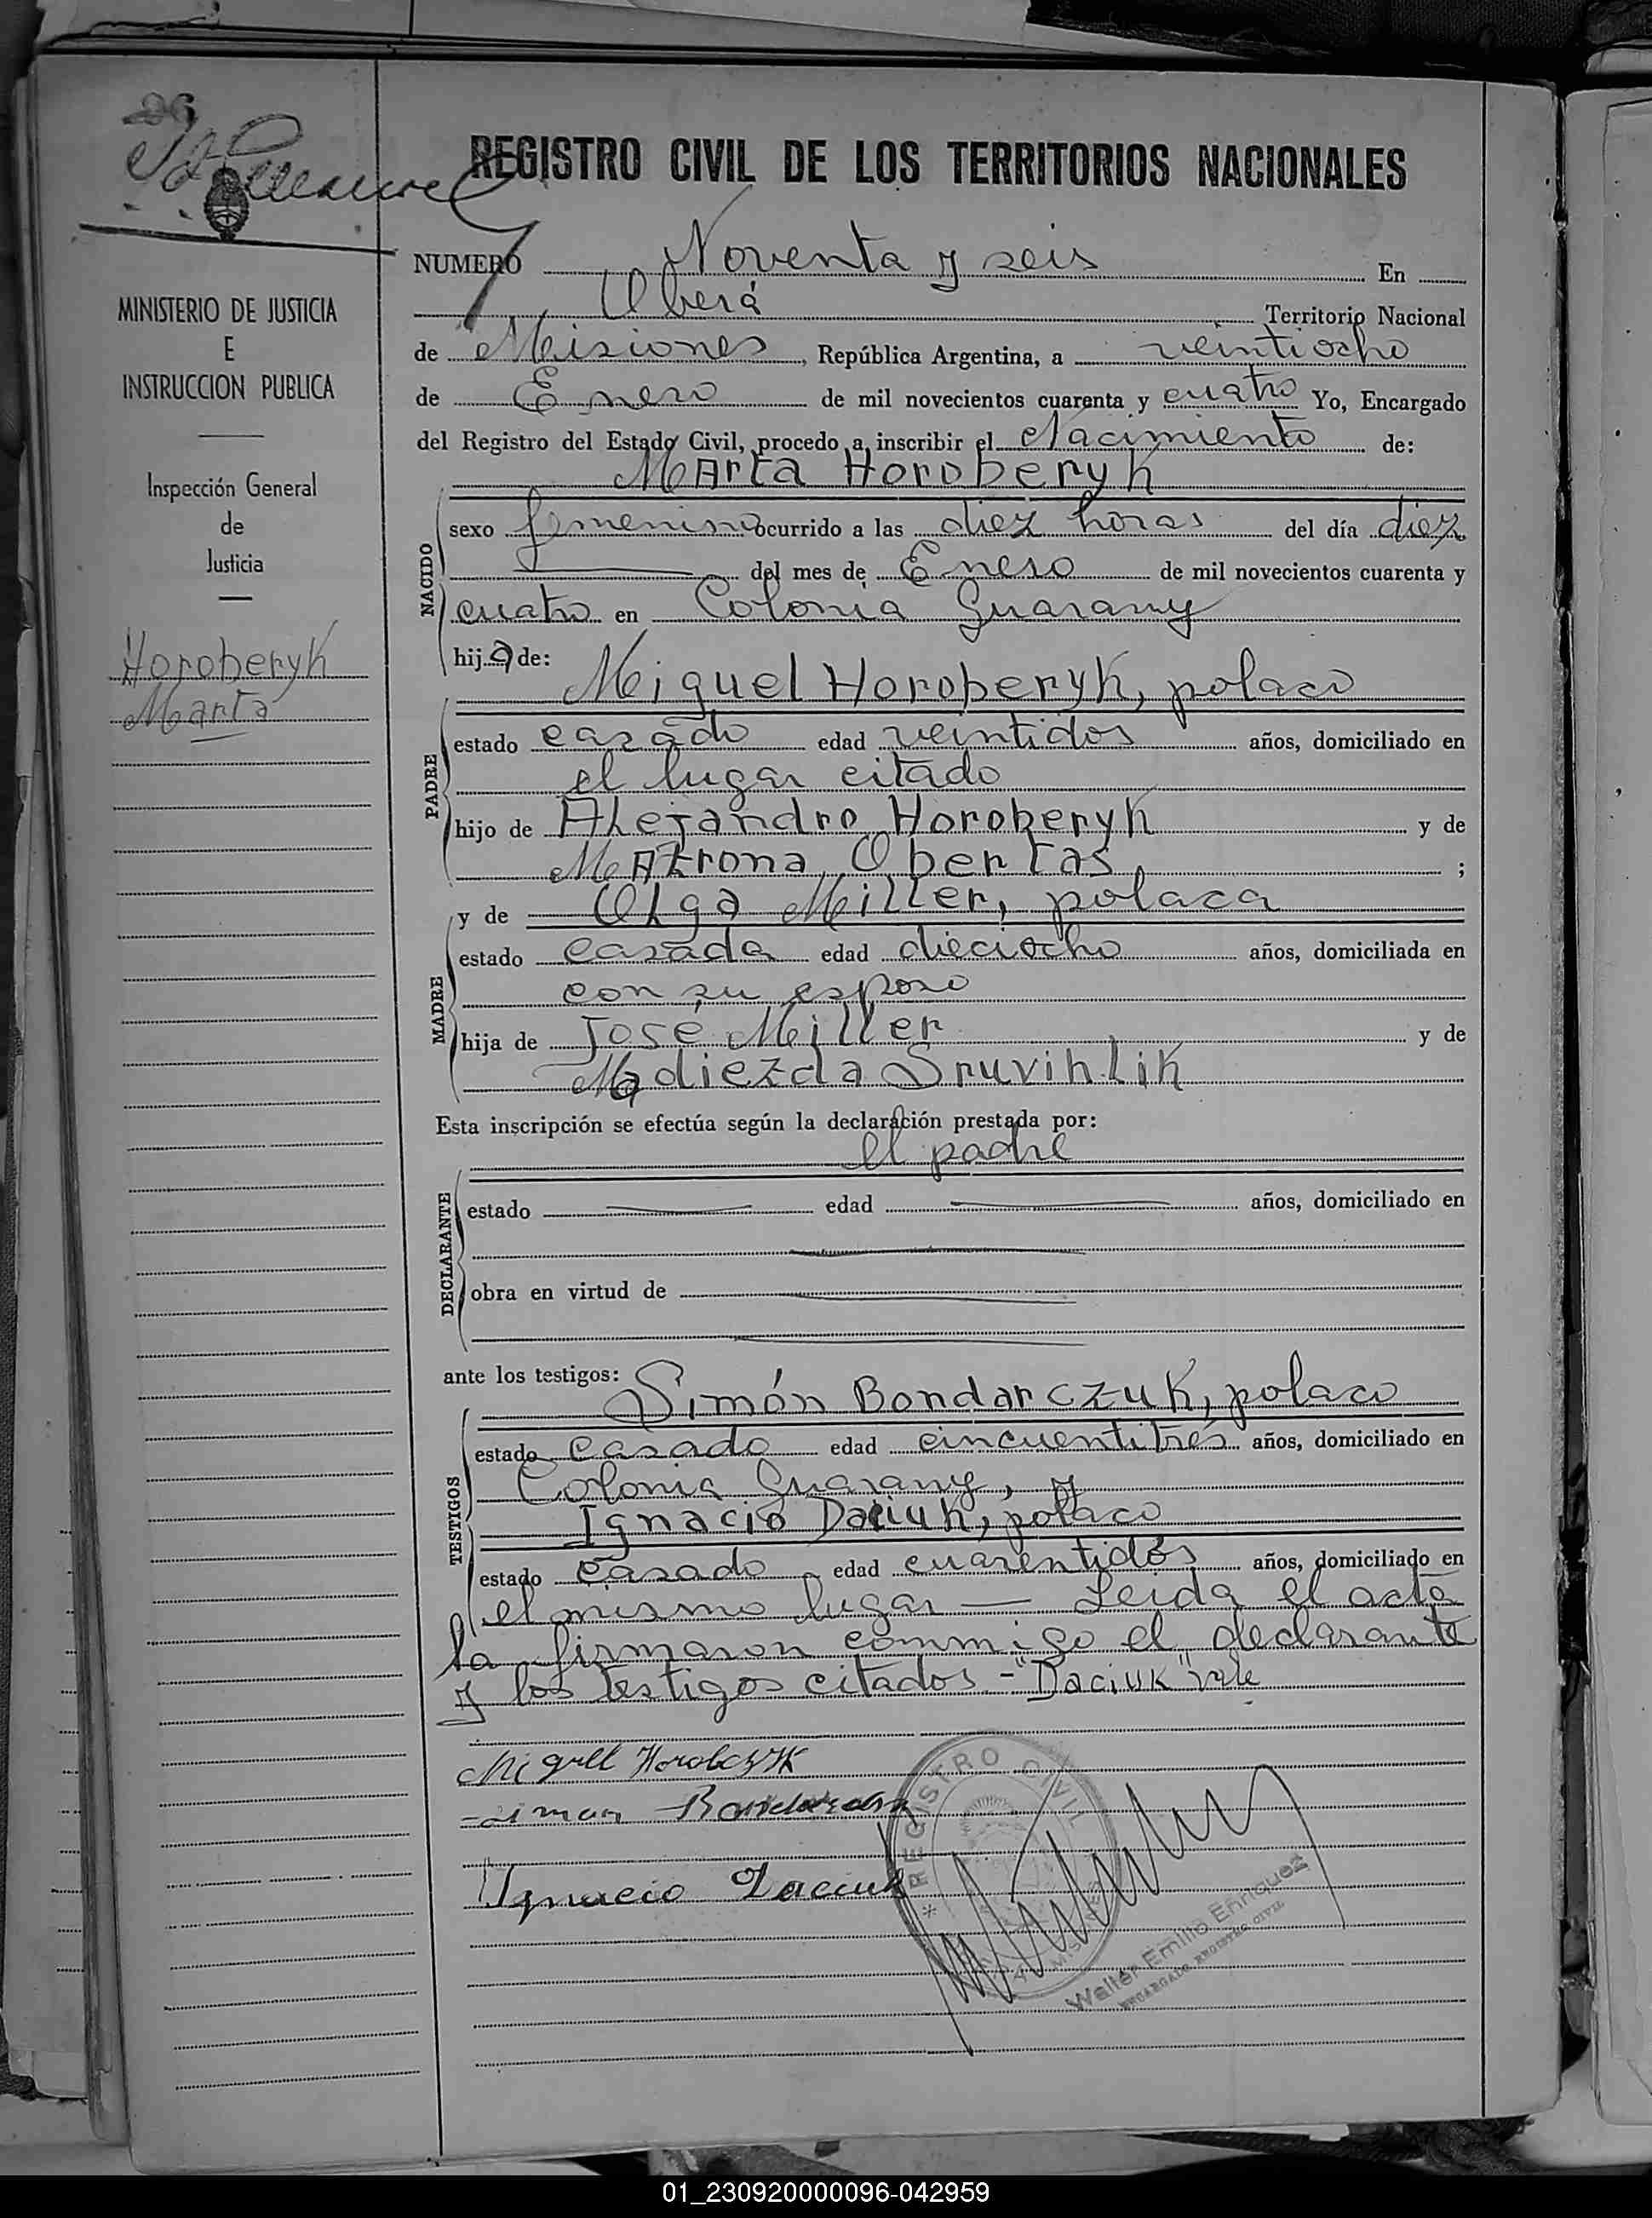 26
REGISTRO CIVIL DE LOS TERRITORIOS NACIONALES
NUMERO Noventa y seis En
Oberá Territorio Nacional
de Misiones, República Argentina, a veintiocho
de Enero de mil novecientos cuarenta y cuatro Yo, Encargado
del Registro del Estado Civil, procedo a inscribir el Nacimiento de:
Marta Horoberyk
sexo femenino ocurrido a las diez horas del día diez
del mes de Enero de mil novecientos cuarenta y
cuatro en Colonia Guarany
hija de:
NACIDO
Miguel Horoberyk, polaco
estado casado edad veintidos años, domiciliado en
el lugar citado
hijo de Alejandro Horoberyk y de
Matrona Obertas ;
PADRE
y de Olga Miller, polaca
estado casada edad dieciocho años, domiciliada en
con su esposo
hija de José Miller y de
Madiezda Sruvihlik
MADRE
Esta inscripción se efectúa según la declaración prestada por:
el padre
estado edad años, domiciliado en
obra en virtud de
DECLARANTE
ante los testigos: Simón Bondarczuk, polaco
estado casado edad cincuentitrés años, domiciliado en
Colonia Guarany, y
Ignacio Daciuk, polaco
estado casado edad cuarentidós años, domiciliado en
el mismo lugar — Leida el acta
la firmaron conmigo el declarante
y los testigos citados - "Daciuk" vale
TESTIGOS
Ignacio Daciuk
REGISTRO CIVIL
Walter Emilio Enriquez
ENCARGADO REGISTRO CIVIL
MINISTERIO DE JUSTICIA
E
INSTRUCCION PUBLICA
Inspección General
de
Justicia
Horoberyk
Marta
01_230920000096-042959